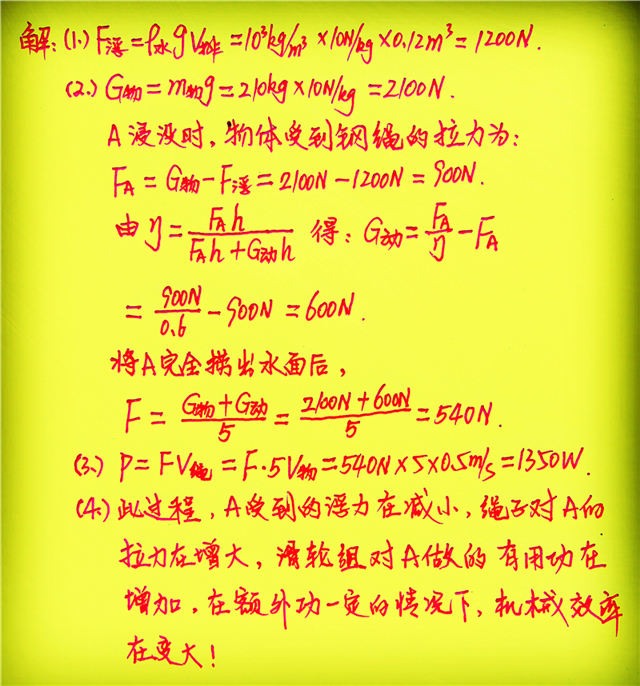 解:(1.) F浮=ρ水gV排=10³kg/m³×10N/kg×0.12m³=1200N.
(2.) G物=m物g=210kg×10N/kg=2100N.
A浸没时,物体受到钢绳的拉力为:
FA=G物-F浮=2100N-1200N=900N.
由η=FAh/(FAh+G动h) 得: G动=FA/η-FA
=900N/0.6-900N=600N.
将A完全捞出水面后,
F=(G物+G动)/5=(2100N+600N)/5=540N.
(3.) P=FV绳=F·5V物=540N×5×0.5m/s=1350W.
(4.) 此过程,A受到的浮力在减小,绳子对A的
拉力在增大,滑轮组对A做的有用功在
增加,在额外功一定的情况下,机械效率
在变大!